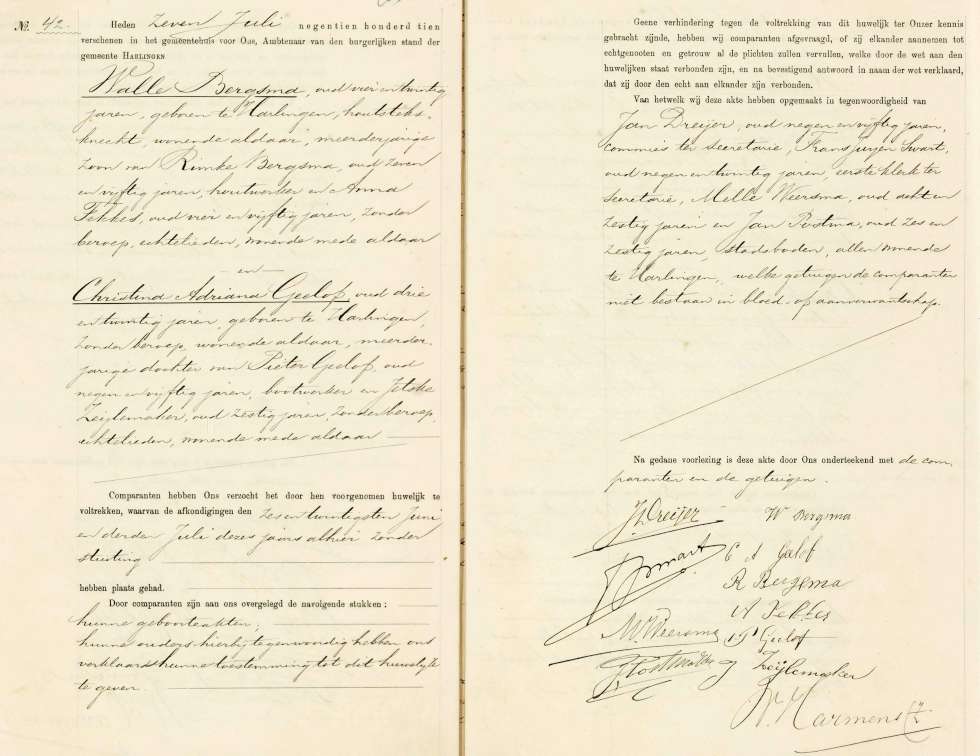 №. 42. Heden zeven Juli negentien honderd tien
verschenen in het gemeentehuis voor Ons, Ambtenaar van den burgerlijken stand der
gemeente HARLINGEN
Walle Bergsma, oud vier en twintig
jaren, geboren te Harlingen, houtsteks-
knecht, wonende aldaar, meerderjarige
zoon van Rimke Bergsma, oud zeven
en vijftig jaren, houtwerker en Anna
Fekkes, oud vier en vijftig jaren, zonder
beroep, echtelieden, wonende mede aldaar
en
Christina Adriana Gelof, oud drie
en twintig jaren, geboren te Harlingen,
zonder beroep, wonende aldaar, meerder-
jarige dochter van Pieter Gelof, oud
negen en vijftig jaren, bootwerker en Jetske
Zeijlemaker, oud zestig jaren, zonder beroep,
echtelieden, wonende mede aldaar
Comparanten hebben Ons verzocht het door hen voorgenomen huwelijk te
voltrekken, waarvan de afkondigingen den zes en twintigsten Juni
en derden Juli dezes jaars alhier zonder
stuiting
hebben plaats gehad.
Door comparanten zijn aan ons overgelegd de navolgende stukken:
hunne geboorteakten;
hunne ouders hierbij tegenwoordig hebben ons
verklaard hunne toestemming tot dit huwelijk
te geven.
Geene verhindering tegen de voltrekking van dit huwelijk ter Onzer kennis
gebracht zijnde, hebben wij comparanten afgevraagd, of zij elkander aannemen tot
echtgenooten en getrouw al de plichten zullen vervullen, welke door de wet aan den
huwelijken staat verbonden zijn, en na bevestigend antwoord in naam der wet verklaard,
dat zij door den echt aan elkander zijn verbonden.
Van hetwelk wij deze akte hebben opgemaakt in tegenwoordigheid van
Jan Dreijer, oud negen en vijftig jaren,
commies ter secretarie, Frans Jurjen Swart,
oud negen en twintig jaren, eerste klerk ter
secretarie, Melle Weersma, oud acht en
zestig jaren en Jan Postma, oud zes en
zestig jaren, stadsboden, allen wonende
te Harlingen, welke getuigen de comparanten
niet bestaan in bloed- of aanverwantschap.
Na gedane voorlezing is deze akte door Ons onderteekend met de com-
paranten en de getuigen.
J. Dreijer W Bergsma
Swart C A Gelof
R Bergsma
A Fekkes
M. Weersma P Gelof
J Postma J Zeijlemaker
Harmens